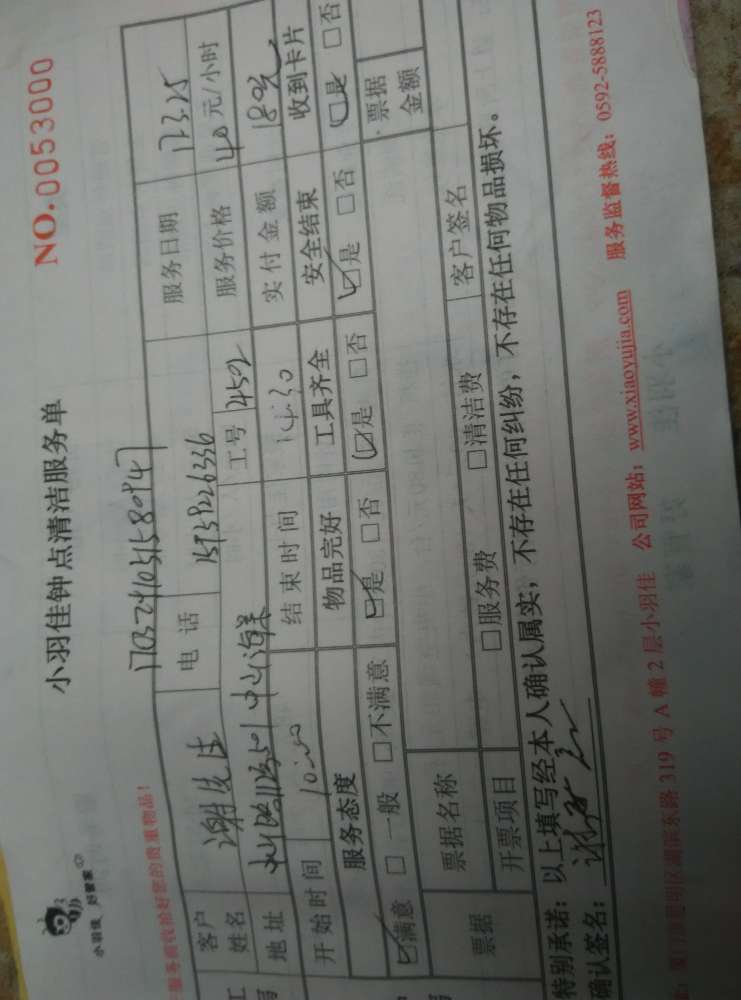 小羽佳 好管家
小羽佳钟点清洁服务单
NO.0053000
服务前收拾好您的贵重物品!
170324105158047
客户姓名 谢先生 电话 服务日期 17.3.25
地址 工号 4502 服务价格 40元/小时
开始时间 10:00 结束时间 14:30 实付金额 180元
服务态度 物品完好 工具齐全 安全结束 收到卡片
☑满意 □一般 □不满意 ☑是 □否 ☑是 □否 ☑是 □否 ☑是 □否
票据 票据名称 票据金额
开票项目 □服务费 □清洁费 客户签名
特别承诺:以上填写经本人确认属实,不存在任何纠纷,不存在任何物品损坏。
确认签名:
厦门市思明区湖滨东路319号A幢2层小羽佳 公司网站:www.xiaoyujia.com 服务监督热线:0592-5888123